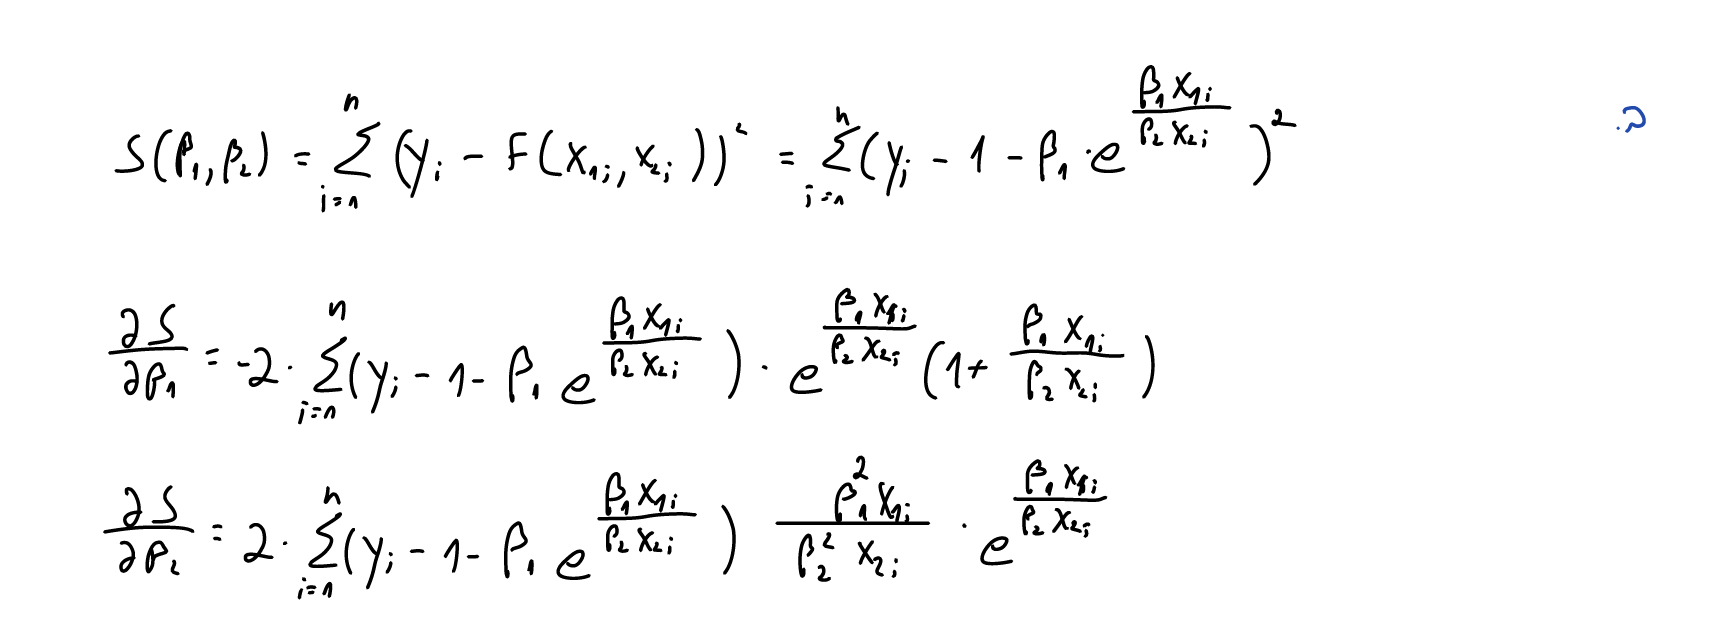 S(β₁,β₂) = ∑_{i=1}^{n} (y_i - F(x_{1i}, x_{2i}))² = ∑_{i=1}^{n} (y_i - 1 - β₁ · e^{\frac{β₁ x_{1i}}{β₂ x_{2i}}})²
\frac{∂S}{∂β₁} = -2 · ∑_{i=1}^{n} (y_i - 1 - β₁ e^{\frac{β₁ x_{1i}}{β₂ x_{2i}}}) · e^{\frac{β₁ x_{1i}}{β₂ x_{2i}}} (1 + \frac{β₁ x_{1i}}{β₂ x_{2i}})
\frac{∂S}{∂β₂} = 2 · ∑_{i=1}^{n} (y_i - 1 - β₁ e^{\frac{β₁ x_{1i}}{β₂ x_{2i}}}) \frac{β₁² x_{1i}}{β₂² x_{2i}} · e^{\frac{β₁ x_{1i}}{β₂ x_{2i}}}